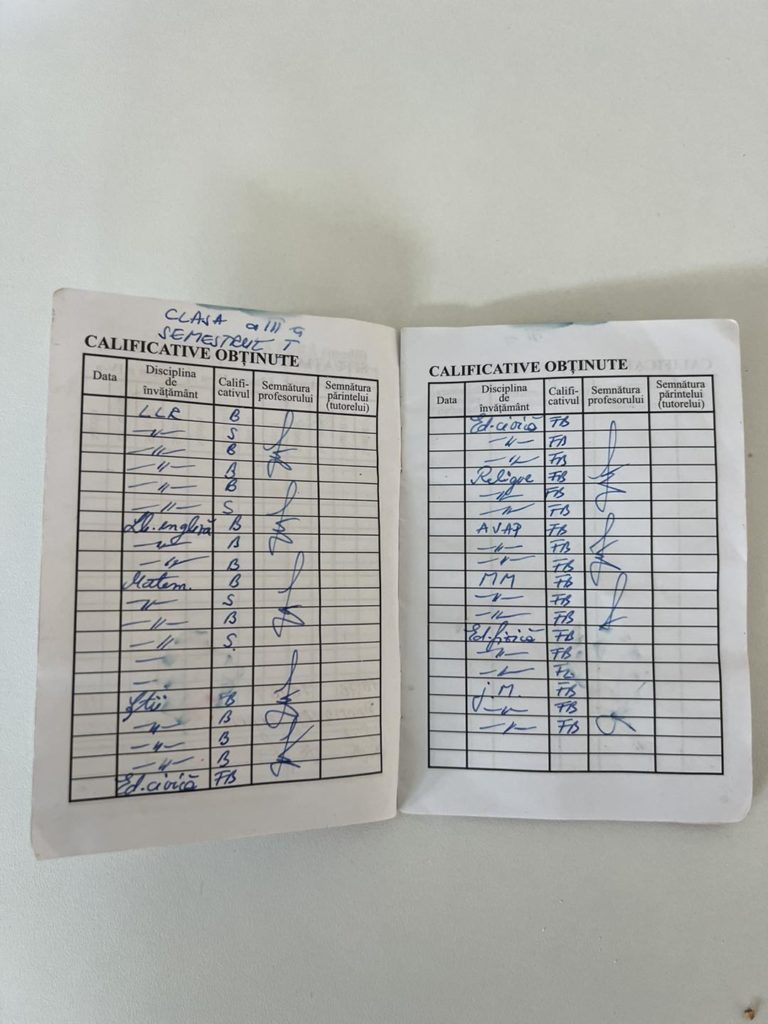 CLASA a III a
SEMESTRUL I
CALIFICATIVE OBȚINUTE
Data Disciplina de învățământ Califi-cativul Semnătura profesorului Semnătura părintelui (tutorelui)
LLR B
-//- S
-//- B
-//- B
-//- B
-//- S
Lb. engleză B
-//- B
-//- B
Matem. B
-//- S
-//- B
-//- S
Știi FB
-//- B
-//- B
-//- B
Ed. civică FB
CALIFICATIVE OBȚINUTE
Data Disciplina de învățământ Califi-cativul Semnătura profesorului Semnătura părintelui (tutorelui)
Ed. civică FB
-//- FB
-//- FB
Religie FB
-//- FB
-//- FB
AVAP FB
-//- FB
-//- FB
MM FB
-//- FB
-//- FB
Ed. fizică FB
-//- FB
-//- FB
J.M. FB
-//- FB
-//- FB